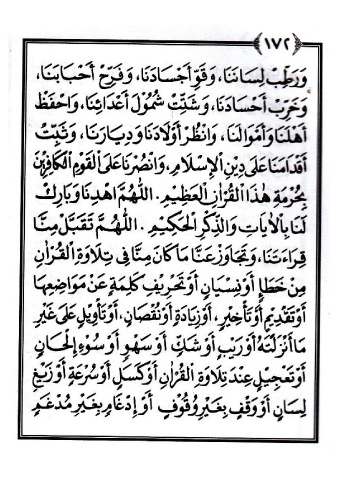 ١٧٢
وَرَطِّبْ لِسَانَنَا، وَقَوِّ أَجْسَادَنَا، وَفَرِّحْ أَحْبَابَنَا،
وَخَرِّبْ أَحْسَادَنَا، وَشَتِّتْ شُمُوْلَ أَعْدَائِنَا، وَاحْفَظْ
أَهْلَنَا وَأَمْوَالَنَا، وَانْظُرْ أَوْلَادَنَا وَدِيَارَنَا، وَثَبِّتْ
أَقْدَامَنَا عَلَى دِيْنِ الْإِسْلَامِ، وَانْصُرْنَا عَلَى الْقَوْمِ الْكَافِرِيْنَ
بِحُرْمَةِ هٰذَا الْقُرْاٰنِ الْعَظِيْمِ. اَللّٰهُمَّ اهْدِنَا وَبَارِكْ
لَنَا بِالْاٰيَاتِ وَالذِّكْرِ الْحَكِيْمِ. اَللّٰهُمَّ تَقَبَّلْ مِنَّا
قِرَاءَتَنَا، وَتَجَاوَزْ عَنَّا مَا كَانَ مِنَّا فِي تِلَاوَةِ الْقُرْاٰنِ
مِنْ خَطَإٍ أَوْ نِسْيَانٍ أَوْ تَحْرِيْفِ كَلِمَةٍ عَنْ مَوَاضِعِهَا
أَوْ تَقْدِيْمٍ أَوْ تَأْخِيْرٍ، أَوْ زِيَادَةٍ أَوْ نُقْصَانٍ، أَوْ تَأْوِيْلٍ عَلَى غَيْرِ
مَا أَنْزَلْتَهُ أَوْ رَيْبٍ أَوْ شَكٍّ أَوْ سَهْوٍ أَوْ سُوْءِ إِلْحَانٍ
أَوْ تَعْجِيْلٍ عِنْدَ تِلَاوَةِ الْقُرْاٰنِ أَوْ كَسَلٍ أَوْ سُرْعَةٍ أَوْ زَيْغِ
لِسَانٍ أَوْ وَقْفٍ بِغَيْرِ وُقُوْفٍ أَوْ إِدْغَامٍ بِغَيْرِ مُدْغَمٍ